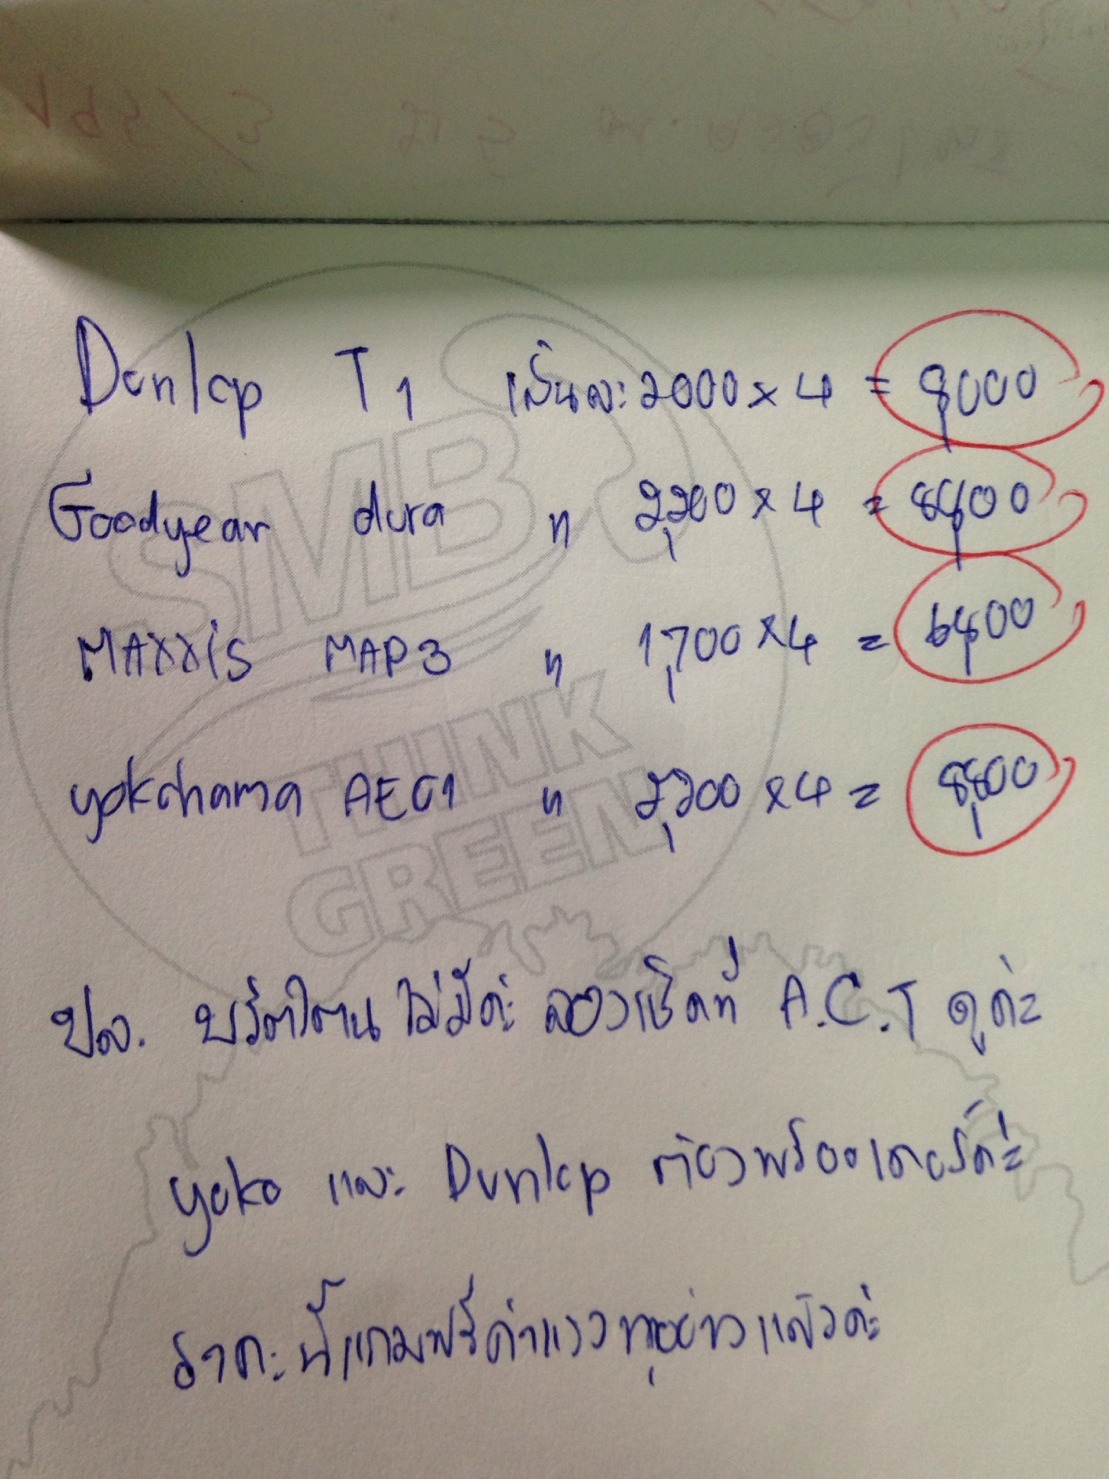 Dunlop T1 เส้นละ 2000 x 4 = 8000
Goodyear dura " 2,200 x 4 = 8800
MAXXIS MAP3 " 1,700 x 4 = 6,800
yokohama AE01 " 2,200 x 4 = 8,800
ปล. บริดสโตน ไม่มีค่ะ ลองเช็คที่ A.C.T ดูค่ะ
yoko และ Dunlop ต้องพรีออเดอร์ค่ะ
ราคะนี้แถมฟรีค่าแรงทุกอย่างแล้วค่ะ
SMB
THINK
GREEN